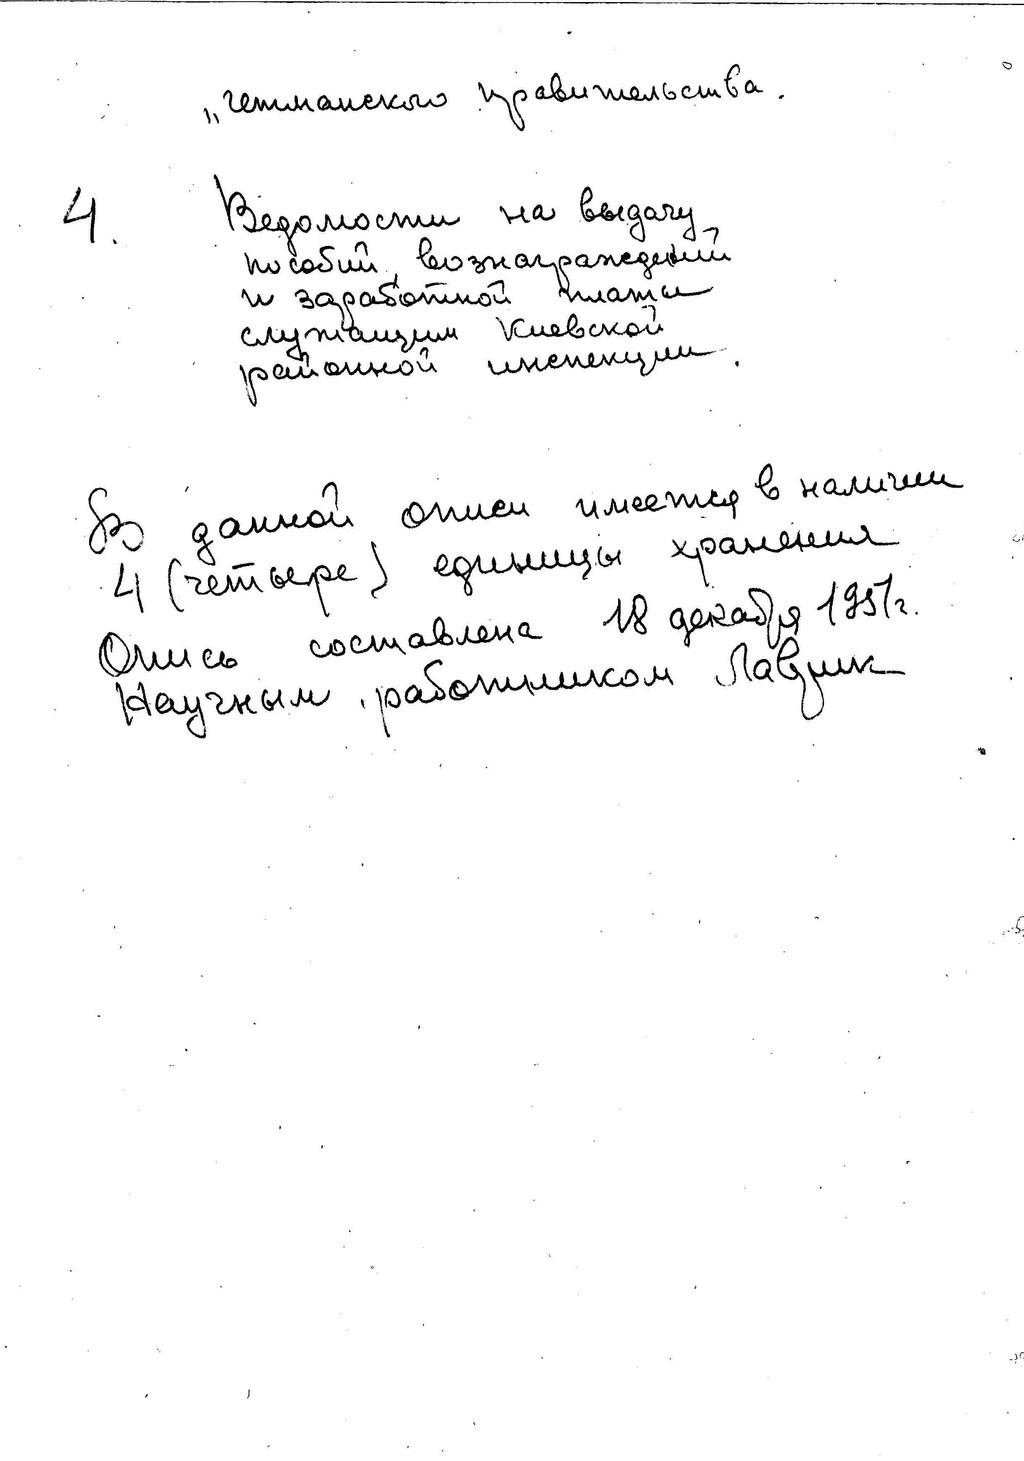 „гетманского правительства.
4. Ведомости на выдачу
пособий, вознаграждений
и заработной платы
служащим Киевской
районной инспекции.
В данной описи имеется в наличии
4 (четыре) единицы хранения
Опись составлена 18 декабря 1951г.
Научным работником Лаврик